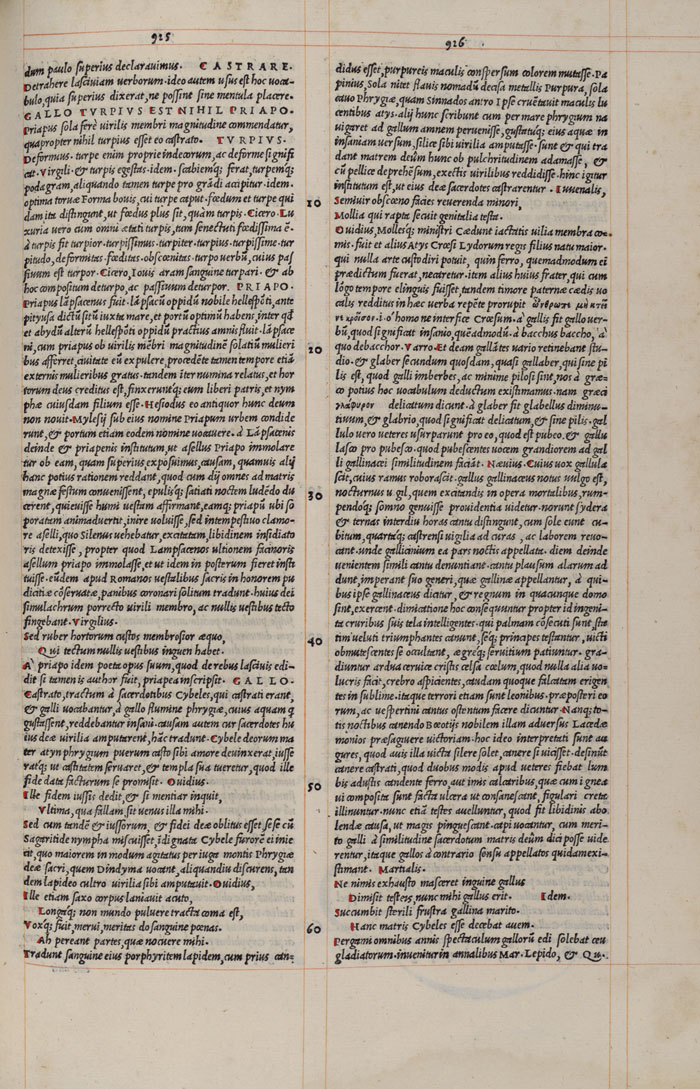 925
dum paulo superius declarauimus. CASTRARE.
Detrahere lasciuiam uerborum·ideo autem usus est hoc uoca-
bulo, quia superius dixerat, ne possint sine mentula placere.
GALLO TVRPIVS EST NIHIL PRIAPO.
Priapus sola ferè uirilis membri magnitudine commendatur,
quapropter nihil turpius esset eo castrato. TVRPIVS.
Deformus·turpe enim proprie indecorum, ac deforme signifi
cat·Virgili·& turpis egestas·idem·scabiemq; ferat, turpemq;
podagram, aliquando tamen turpe pro grādi accipitur·idem·
optima toruæ Forma bouis, cui turpe caput·fœdum et turpe qui
dam ita distingunt, ut fœdus plus sit, quàm turpis·Cicero·Lu
xuria uero cum omni ætati turpis, tum senectuti fœdissima ē·
à turpis fit turpior·turpissimus·turpiter·turpius·turpissime·tur
pitudo, deformitas·fœditas·obscœnitas·turpo uerbū, cuius pas
siuum est turpor·Cicero, Iouis aram sanguine turpari·& ab
hoc compositum deturpo, ac passiuum deturpor. PRIAPO·
Priapus lāpsacenus fuit·lāpsacū oppidū nobile hellespōti, ante
pityusa dictū sitū iuxta mare, et portū optimū habens, inter qđ
et abydū alterū hellespōti oppidū practius amnis fluit·lāpsace
ni, cum priapus ob uirilis mēbri magnitudinē solatiū mulieri
bus afferret, ciuitate eū expulere, procedēte tamen tempore etiā
externis mulieribus gratus·tandem iter numina relatus, et hor
torum deus creditus est, finxerūntq; eum liberi patris, et nym
phæ cuiusdam filium esse·Hesiodus eo antiquor hunc deum
non nouit·Mylesij sub eius nomine Priapum urbem condide
runt, & portum etiam eodem nomine uocauere·à Lāpsacenis
deinde & priapenis institutum, ut asellus Priapo immolare
tur ob eam, quam superius exposuimus, causam, quamuis alij
hanc potius rationem reddant, quod cum dij omnes ad matris
magnæ festum conuenissent, epulisq; satiati noctem ludēdo du
cerent, quieuisse humi uestam affirmant, eamq; priapū ubi so
poratam animaduertit, inire uoluisse, sed intempestiuo clamo-
re aselli, quo Silenus uehebatur, excitatam, libidinem insidiato
ris detexisse, propter quod Lampsacenos ultionem facinoris
asellum priapo immolasse, et ut idem in posterum fieret insti
tuisse·eūdem apud Romanos uestalibus sacris in honorem pu
dicitiæ cōseruatæ, panibus coronari solitum tradunt·huius dei
simulachrum porrecto uirili membro, ac nullis uestibus tecto
fingebant·Virgilius·
Sed ruber hortorum custos membrosior æquo,
Qui tectum nullis uestibus inguen habet·
A priapo idem poeta opus suum, quod de rebus lasciuis edi-
dit si tamen is author fuit, priapea inscripsit· GALLO·
Castrato, tractum à sacerdotibus Cybeles, qui castrati erant,
& galli uocabantur, à gallo flumine phrygiæ, cuius aquam q
gustassent, reddebantur insani·causam autem cur sacerdotes hu
ius deæ uirilia amputerent, hāc tradunt·Cybele deorum ma
ter atyn phrygium puerum casto sibi amore deuinxerat, iusse
ratq; ut castitatem seruaret, & templa sua tueretur, quod ille
fide data facturum se promisit·Ouidius·
Ille fidem iussis dedit, & si mentiar inquit,
Vltima, qua fallam, sit uenus illa mihi·
Sed cum tandē & iussorum, & fidei deæ oblitus esset, sese cū
Sagaritide nympha miscuisset, idignata Cybele furorē ei iniec
cit, quo maiorem in modum agitatus per iuga montis Phrygiæ
deæ sacri, quem Dindyma uocant, aliquandiu discurens, tan
dem lapideo cultro uirilia sibi amputauit·Ouidius,
Ille etiam saxo corpus laniauit acuto,
Longaq; non mundo puluere tracta coma est,
Voxq; fuit, merui, meritas do sanguine pœnas·
Ah pereant partes, quæ nocuere mihi·
Tradunt sanguine eius porphyritem lapidem, cum prius can-
10
20
30
40
50
60
926
didus esset, purpureis maculis conspersum colorem mutasse·Pa
pinius, Sola nitet flauis nomadū decisa metallis Purpura, sola
cauo Phrygiæ, quam Sinnados antro Ipse cruētauit maculis lu
centibus atys·alij hunc scribunt cum per mare phrygium na
uigaret ad gallum amnem peruenisse, gustatisq; eius aquæ in
insaniam uersum, silice sibi uirilia amputasse·sunt & qui tra
dant matrem deūm hunc ob pulchritudinem adamasse, &
cū pellice deprehēsum, exectis uirilibus reddidisse·hinc igitur
institutum est, ut eius deæ sacerdotes castrarentur·Iuuenalis,
Semiuir obscœno facies reuerenda minori,
Mollia qui rapta secuit genitalia testa·
Ouidius, Mollesq; ministri Cædunt iactatis uilia membra co-
mis·fuit et alius Atys Crœsi Lydorum regis filius natu maior·
qui nulla arte custodiri potuit, quin ferro, quemadmodum ei
prædictum fuerat, necaretur·item alius huius frater, qui cum
lōgo tempore elinguis fuisset, tandem timore paternæ cædis uo
calis redditus in hæc uerba repēte prorupit ἄνθρωπε μὴ κτεῖ
νε κροῖσον·i·o' homo ne interfice Crœsum·à gallis fit gallo uer-
bū, quod significat insanio, quēadmodū·à bacchus baccho, à
quo debacchor·Varro·Et deam gallātes uario retinebant stu-
dio·& glaber secundum quosdam, quasi gallaber, qui sine pi
lis est, quod galli imberbes, ac minime pilosi sint, nos à græ-
co potius hoc uocabulum deductum existimamus·nam græci
γλάφυρον delicatum dicunt·à glaber fit glabellus diminu-
tiuum, & glabrio, quod significat delicatum, & sine pilis·gal
lulo uero ueteres usurparunt pro eo, quod est pubeo, & gallu
lasco pro pubesco·quod pubescentes uocem grandiorem ad gal
li gallinacei similitudinem faciāt·Næuius·Cuius uox gallula
scit, cuius ramus roborascit·gallus gallinaceus notus uulgo est,
nocturnus uigil, quem excitandis in opera mortalibus, rum-
pendoq; somno genuisse prouidentia uidetur·norunt sydera
& ternas interdiu horas cantu distingunt, cum sole eunt cu-
bitum, quartaq; castrensi uigilia ad curas, ac laborem reuo-
cant·unde gallicinium ea pars noctis appellata·diem deinde
uenientem simili cantu denuntiant·cantu plausum alarum ad
dunt, imperant suo generi, quæ gallinæ appellantur, à qui-
bus ipse gallinaceus dicitur, & regnum in quacunque domo
sint, exercent·dimicatione hoc consequuntur propter id ingeni-
ta cruribus suis tela intelligentes·qui palmam cōsecuti sunt, sta
tim ueluti triumphantes canunt, seq; principes testantur, uicti
obmutescentes se occultant, ægreq; seruitium patiuntur·gra-
diuntur ardua ceruice cristis celsa cœlum, quod nulla alia uo-
lucris facit, crebro aspicientes, caudam quoque falcatam erigen
tes in sublime·itaque terrori etiam sunt leonibus·præposteri eo
rum, ac uespertini cantus ostentum facere dicuntur·Nanq; to-
tis noctibus canendo Bœotijs nobilem illam aduersus Lacedæ
monios præsaguere uictoriam·hoc ideo interpretati sunt au-
gures, quod auis illa uicta silere solet, canere si uicisset·desinūt
canere castrati, quod duobus modis apud ueteres fiebat lum
bis adustis candente ferro, aut imis calcaribus, quæ cum igneæ
ui composita sunt facta ulcera ut consanescant, figulari creta
illinuntur·nunc etiā testes auelluntur, quod fit libidinis abo
lendæ causa, ut magis pinguescant·capi uocantur, cum meri-
to galli à similitudine sacerdotum matris deūm dici posse uide
rentur, itaque gallos à contrario sensu appellatos quidam exi-
stimant· Martialis·
Ne nimis exhausto macreret inguine gallus
Dimisit testes, nunc mihi gallus erit· Idem·
Succumbit sterili frustra gallina marito·
Hanc matris Cybeles esse decebat auem·
Pergami omnibus annis spectaculum gallorū edi solebat ceu
gladiatorum·inuenitur in annalibus Mar·Lepido, & Qu·